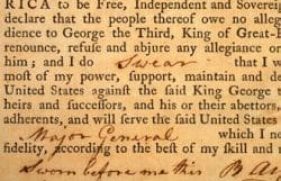 RICA to be Free, Independent and Sovereig
declare that the people thereof owe no alleg
dience to George the Third, King of Great-B
renounce, refuse and abjure any allegiance or
him; and I do Swear that I w
most of my power, support, maintain and de
United States againſt the ſaid King George t
heirs and ſucceſſors, and his or their abettors,
adherents, and will ſerve the ſaid United States
Major General which I no
fidelity, according to the beſt of my ſkill and u
Sworn before me this